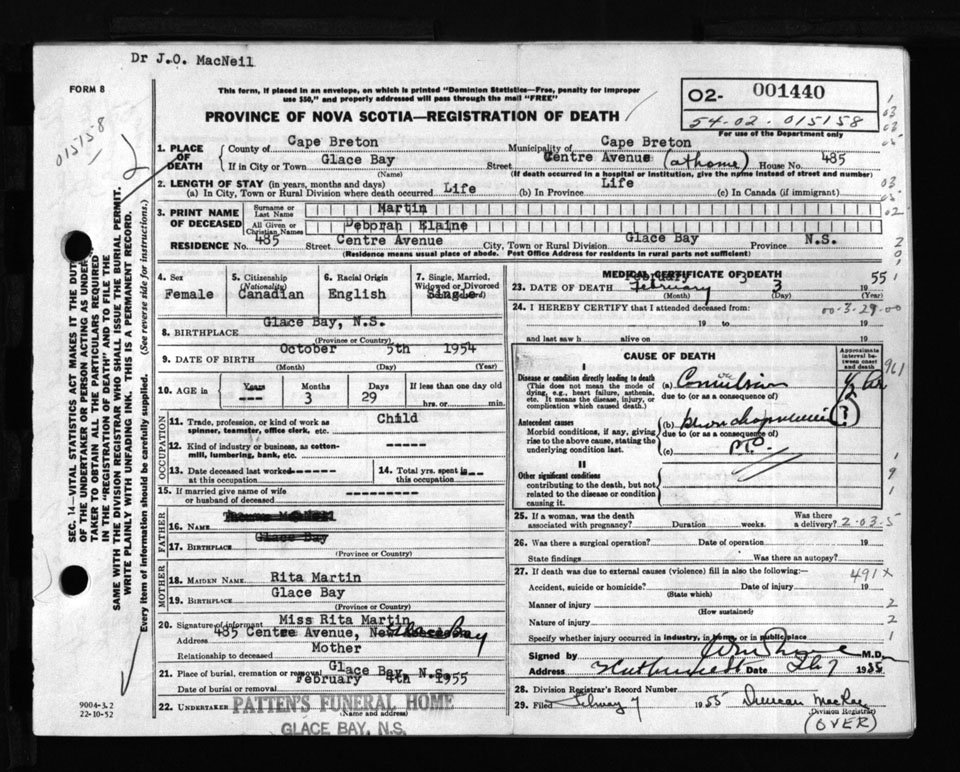 Dr J.O. MacNeil
FORM 8
This form, if placed in an envelope, on which is printed "Dominion Statistics—Free, penalty for improper
use $50," and properly addressed will pass through the mail "FREE"
PROVINCE OF NOVA SCOTIA—REGISTRATION OF DEATH
O2- 001440
54-02-015158
For use of the Department only
015158
SEC. 14—VITAL STATISTICS ACT MAKES IT THE DUTY
OF THE UNDERTAKER OR PERSON ACTING AS UNDER-
TAKER TO OBTAIN ALL THE PARTICULARS REQUIRED
IN THE "REGISTRATION OF DEATH" AND TO FILE THE
SAME WITH THE DIVISION REGISTRAR WHO SHALL ISSUE THE BURIAL PERMIT.
WRITE PLAINLY WITH UNFADING INK. THIS IS A PERMANENT RECORD.
Every item of information should be carefully supplied. (See reverse side for instructions.)
1. PLACE OF DEATH County of Cape Breton Municipality of Cape Breton
If in City or Town Glace Bay Street Centre Avenue (at home) House No. 485
(Name) (If death occurred in a hospital or institution, give the name instead of street and number)
2. LENGTH OF STAY (in years, months and days)
(a) In City, Town or Rural Division where death occurred Life (b) In Province Life (c) In Canada (if immigrant)
3. PRINT NAME OF DECEASED Surname or Last Name Martin
All Given or Christian Names Deborah Elaine
RESIDENCE No. 485 Street Centre Avenue City, Town or Rural Division Glace Bay Province N.S.
(Residence means usual place of abode. Post Office Address for residents in rural parts not sufficient)
4. Sex 5. Citizenship (Nationality) 6. Racial Origin 7. Single, Married, Widowed or Divorced
Female Canadian English Single
8. BIRTHPLACE Glace Bay, N.S.
(Province or Country)
9. DATE OF BIRTH October 5th 1954
(Month) (Day) (Year)
10. AGE in Years Months Days If less than one day old
--- 3 29 hrs. or min.
OCCUPATION
11. Trade, profession, or kind of work as
spinner, teamster, office clerk, etc. Child
12. Kind of industry or business, as cotton-
mill, lumbering, bank, etc. -----
13. Date deceased last worked at this occupation ------- 14. Total yrs. spent in this occupation ---
15. If married give name of wife
or husband of deceased ----------
FATHER
16. NAME
17. BIRTHPLACE Glace Bay
(Province or Country)
MOTHER
18. MAIDEN NAME Rita Martin
19. BIRTHPLACE Glace Bay
(Province or Country)
20. Signature of informant Miss Rita Martin
Address 485 Centre Avenue, New Glace Bay
Relationship to deceased Mother
21. Place of burial, cremation or removal Glace Bay, N.S.
Date of burial or removal February 4th 1955
22. UNDERTAKER PATTEN'S FUNERAL HOME
(Name and address)
GLACE BAY, N.S.
9004-3.2
22-10-52
MEDICAL CERTIFICATE OF DEATH
February 3 55
23. DATE OF DEATH February 3 19
(Month) (Day) (Year)
24. I HEREBY CERTIFY that I attended deceased from 00-3-29-00
19 to 19
and last saw h alive on 19
CAUSE OF DEATH
Approximate interval between onset and death
I
Disease or condition directly leading to death
(This does not mean the mode of
dying, e.g., heart failure, asthenia,
etc. It means the disease, injury, or
complication which caused death.)
(a) Convulsion
due to (or as a consequence of)
Antecedent causes
Morbid conditions, if any, giving
rise to the above cause, stating the
underlying condition last.
(b) bronchopneumonia (?)
due to (or as a consequence of)
(c) P.T.O.
II
Other significant conditions
contributing to the death, but not
related to the disease or condition
causing it.
961
25. If a woman, was the death Was there
associated with pregnancy? Duration weeks. a delivery? 2-03-5
26. Was there a surgical operation? Date of operation 19
State findings Was there an autopsy?
27. If death was due to external causes (violence) fill in also the following:— 491X
Accident, suicide or homicide? Date of injury 19
(State which)
Manner of injury
(How sustained)
Nature of injury
Specify whether injury occurred in industry, in home or in public place
Signed by M.D.
Address Date Feb 7 1955
28. Division Registrar's Record Number
29. Filed February 7 1955 Duncan MacRae
(Division Registrar)
(OVER)